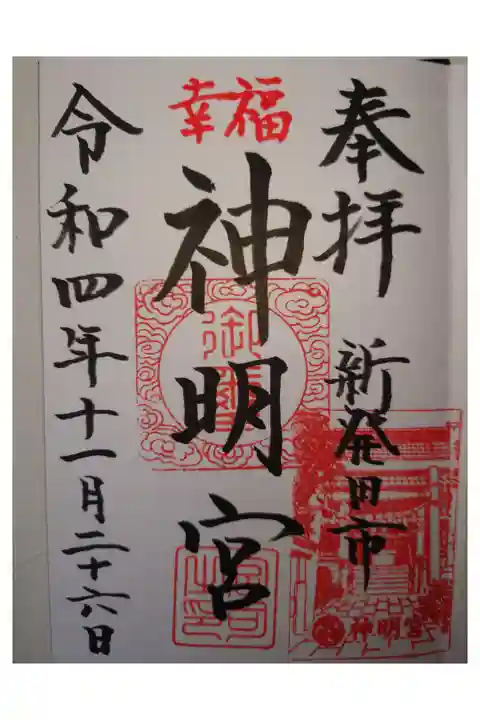 奉拝
新発田市
幸福
神明宮
神明宮
令和四年十一月二十六日